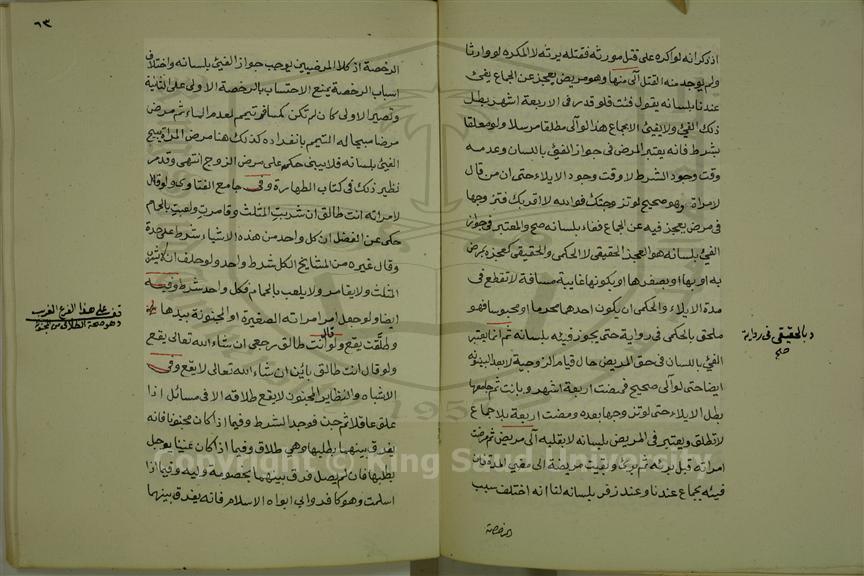 اذ ذكر انه لو اكره على قتل مورثه فقتله يرثه لا المكره لو وارثا
ولم يوجد منه القتل آلى منها وهو مريض يعجز عن الجماع يفئ
عندنا بلسانه يقول فئت فلو قدر في الاربعة اشهر بطل
ذلك الفئ ولا يفئ الا بجماع هذا لو آلى مطلقا مرسلا ولو معلقا
بشرط فانه يعتبر المرض في جواز الفئ باللسان وعدمه
وقت وجود الشرط لا وقت وجود الايلاء حتى ان من قال
لامراة وهو صحيح لو تزوجتك فوالله لا اقربك فتزوجها
في مرض يعجز فيه عن الجماع ففاء بلسانه صح والمعتبر في جواز
الفئ بلسانه هو العجز الحقيقي لا الحكمي والحقيقي كعجزه بمرض
به او بها او بصغرها او بكونها غايبة مسافة لا تقطع في
مدة الايلاء والحكمي ان يكون احدهما محرما او محبوسا فهو
ملحق بالحكمي في رواية حتى يجوز فيئه بلسانه ثم انما يعتبر
الفئ باللسان في حق المريض حال قيام الزوجية لا بعد البينونة
ايضا حتى لو آلى صحيح فمضت اربعة اشهر وبانت ثم جامعها
بطل الايلاء حتى لو تزوجها بعده ومضت اربعة بلا جماع
لا تطلق ويعتبر في المريض بلسانه لا بقلبه آلى مريض ثم مرضت
امراته قبل برئه ثم برئ وبقيت مريضة الى مضي المدة فان
فيئه بجماع عندنا وعند زفر بلسانه لنا انه اختلف سبب
الرخصة
وبالحقيقي في رواية
صح
٦٣
الرخصة اذ كلا المرضيين يوجب جواز الفئ بلسانه واختلاف
اسباب الرخصة يمنع الاحتساب بالرخصة الاولى على الثانية
وتصير الاولى كان لم تكن كمسافر تيمم لعدم الماء ثم مرض
مرضا مبيحا له التيمم بانفراده كذلك هنا مرض المراة يبيح
الفئ بلسانه فلا يبنى حكمه على مرض الزوج انتهى وقد مر
نظير ذلك في كتاب الطهارة وفي جامع الفتاوى ولو قال
لامراته انت طالق ان شربت المثلث وقامرت ولعبت بالحمام
حكى عن الفضل ان كل واحد من هذه الاشياء شرط على حدة
وقال غيره من المشايخ الكل شرط واحد ولو حلف ان لا يشرب
المثلث ولا يقامر ولا يلعب بالحمام فكل واحد شرط وفيه
ايضا ولو جعل امر امراته الصغيرة او المجنونة بيدها
وطلقت يقع ولو قال انت طالق رجعي ان شاء الله تعالى يقع
ولو قال انت طالق بائن ان شاء الله تعالى لا يقع وفي
الاشباه والنظاير المجنون لا يقع طلاقه الا في مسائل اذا
علق عاقلا ثم جن فوجد الشرط وفيما اذا كان مجبوبا فانه
يفرق بينهما بطلبها وهي طلاق وفيما اذا كان عنينا يؤجل
بطلبها فان لم يصل فرق بينهما بخصومة وليه وفيما اذا
اسلمت وهو كافر وابى ابواه الاسلام فانه يفرق بينهما
قف على هذا الفرع الغريب
وهو صحة الطلاق من المجنونة
Copyright © King Saud University
195